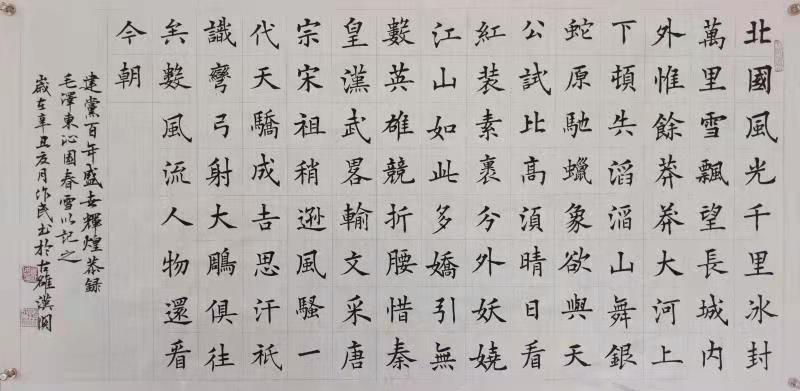 北國風光千里冰封
萬里雪飄望長城内
外惟餘莽莽大河上
下頓失滔滔山舞銀
蛇原馳蠟象欲與天
公試比高須晴日看
紅裝素裹分外妖嬈
江山如此多嬌引無
數英雄競折腰惜秦
皇漢武畧輸文采唐
宗宋祖稍遜風騷一
代天驕成吉思汗祇
識彎弓射大鵰俱往
矣數風流人物還看
今朝
建黨百年盛世輝煌恭録
毛澤東沁園春雪以記之
歲在辛丑亥月作民书於古雒漢